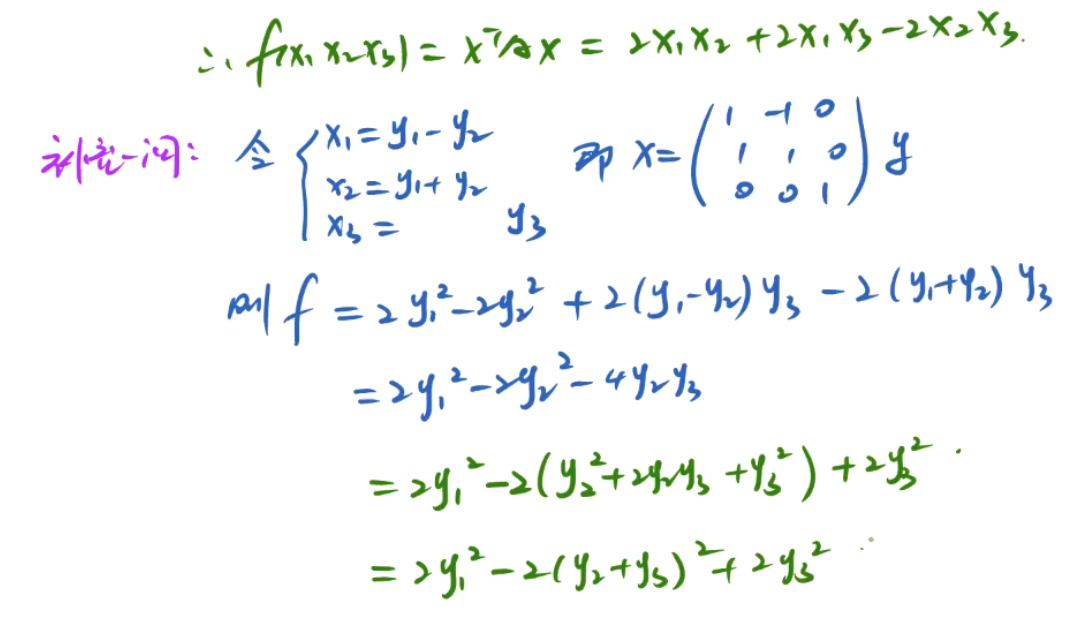 ∴ f(x₁ x₂ x₃) = xᵀAx = 2x₁x₂ + 2x₁x₃ - 2x₂x₃.
补充一问: 令 { x₁ = y₁ - y₂ 即 x = ( 1 -1 0 ) y
x₂ = y₁ + y₂ 1 1 0
x₃ = y₃ 0 0 1
则 f = 2y₁² - 2y₂² + 2(y₁ - y₂) y₃ - 2(y₁ + y₂) y₃
= 2y₁² - 2y₂² - 4y₂y₃
= 2y₁² - 2(y₂² + 2y₂y₃ + y₃²) + 2y₃².
= 2y₁² - 2(y₂ + y₃)² + 2y₃²